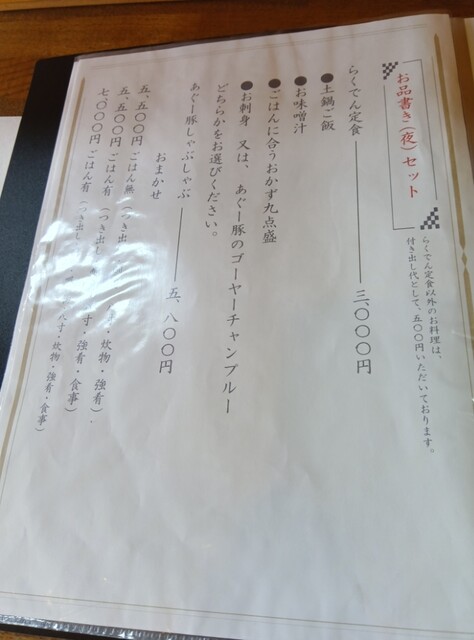 お品書き(夜)セット
らくでん定食以外のお料理は、
付き出し代として、五〇〇円いただいております。
らくでん定食 ─── 三、〇〇〇円
●土鍋ご飯
●お味噌汁
●ごはんに合うおかず九点盛
●お刺身 又は、あぐー豚のゴーヤーチャンプルー
どちらかをお選びください。
あぐー豚しゃぶしゃぶ ─── 五、八〇〇円
おまかせ
五、五〇〇円 ごはん無 (つき出し 炊物・強肴)
五、五〇〇円 ごはん有 (つき出し 寸・強肴・食事)
七、〇〇〇円 ごはん有 (つき出し 八寸・炊物・強肴・食事)